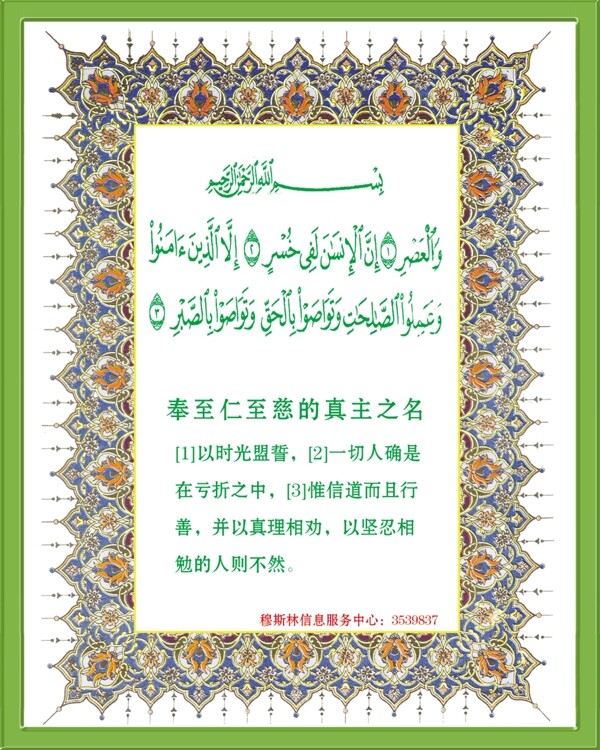 بِسْمِ ٱللَّهِ ٱلرَّحْمَٰنِ ٱلرَّحِيمِ
وَٱلْعَصْرِ ١ إِنَّ ٱلْإِنسَٰنَ لَفِى خُسْرٍ ٢ إِلَّا ٱلَّذِينَ ءَامَنُوا۟
وَعَمِلُوا۟ ٱلصَّٰلِحَٰتِ وَتَوَاصَوْا۟ بِٱلْحَقِّ وَتَوَاصَوْا۟ بِٱلصَّبْرِ ٣
奉至仁至慈的真主之名
[1]以时光盟誓，[2]一切人确是
在亏折之中，[3]惟信道而且行
善，并以真理相劝，以坚忍相
勉的人则不然。
穆斯林信息服务中心：3539837